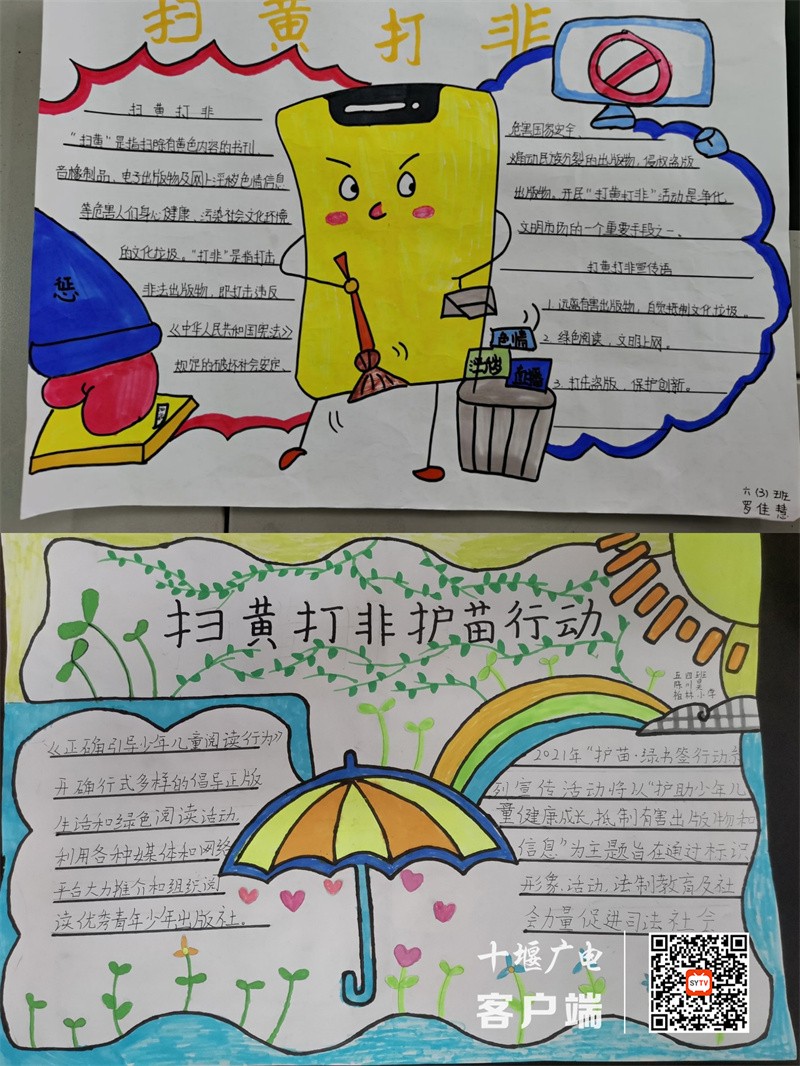 扫黄打非
扫黄打非
“扫黄”是指扫除有黄色内容的书刊
音像制品、电子出版物及网上淫秽色情信息
等危害人们身心健康、污染社会文化环境
的文化垃圾。“打非”是指打击
非法出版物，即打击违反
《中华人民共和国宪法》
规定的破坏社会安定、
危害国家安全、
煽动民族分裂的出版物，侵权盗版
出版物。开民“扫黄打非”活动是净化
文明市场的一个重要手段之一。
扫黄打非宣传语
1.远离有害出版物，自觉抵制文化垃圾。
2.绿色阅读，文明上网。
3.打击盗版，保护创新。
惩
色情
淫秽
六(3)班
罗佳慧
扫黄打非护苗行动
五四班
柏林小学
《正确引导少年儿童阅读行为》
开确行式多样的倡导正版
生活和绿色阅读活动.
利用各种媒体和网络
平台大力推介和组织阅
读优秀青年少年出版社。
2021年“护苗·绿书签行动系
列宣传活动将以“护助少年儿
童健康成长,抵制有害出版物和
信息”为主题旨在通过标识
形象、活动、法制教育及社
会力量促进司法社会
十堰广电
客户端
SYTV